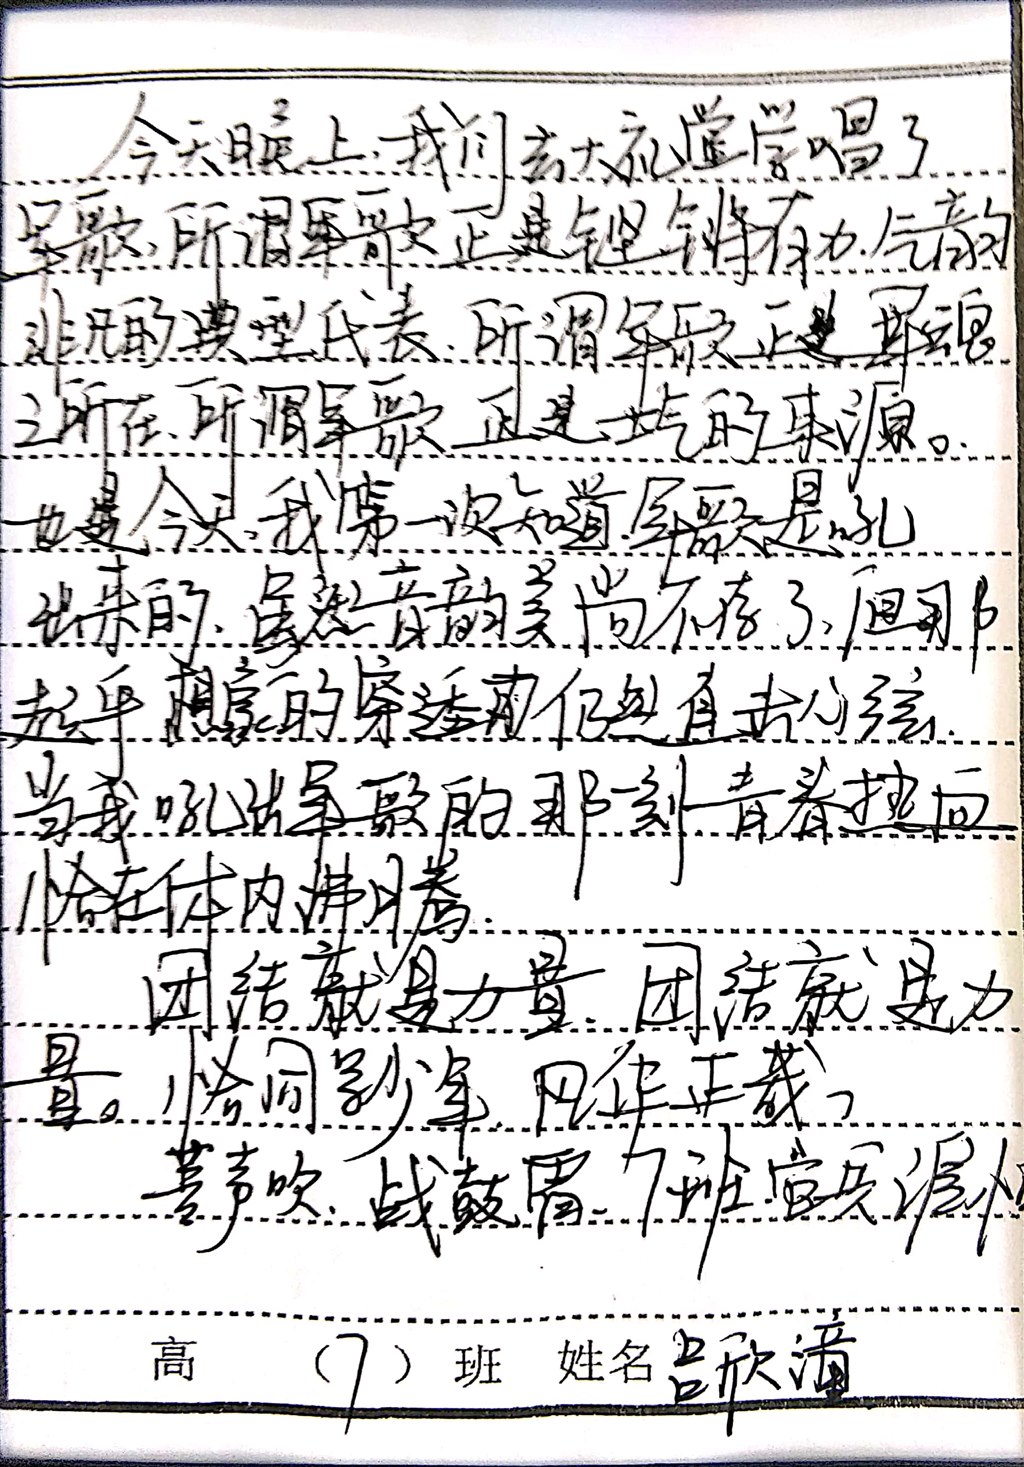 今天晚上,我们去大礼堂学唱了
军歌,所谓军歌正是铿锵有力,气韵
非凡的典型代表,所谓军歌正是军魂
之所在,所谓军歌正是士气的来源。
也是今天,我第一次知道,军歌是吼
出来的,虽然音韵美尚不存了,但那
超乎想象的穿透力仍然直击心弦,
当我吼出军歌的那一刻,青春热血
恰在体内沸腾.
团结就是力量,团结就是力
量。恰同学少年,风华正茂,
号声吹,战鼓雷,7班官兵
高 (7) 班 姓名 吕欣